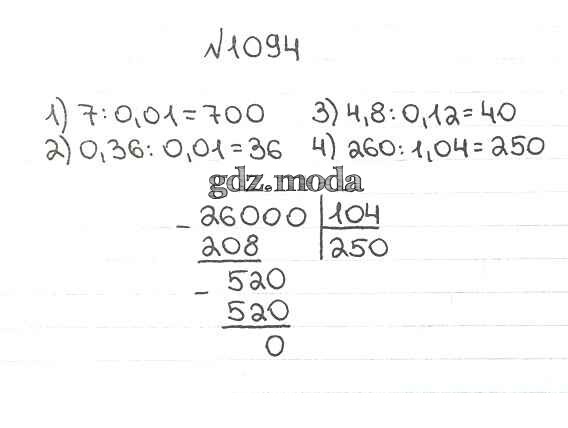 №1094
1) 7:0,01=700
3) 4,8:0,12=40
2) 0,36:0,01=36
4) 260:1,04=250
gdz.moda
- 26000 | 104
208 | 250
- 520
520
0